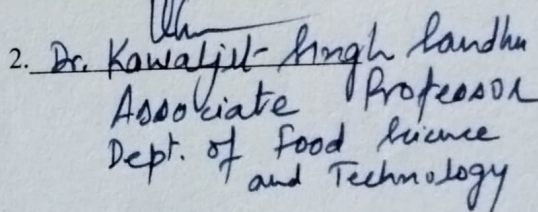 2. Dr. Kawaljit Singh Sandhu
Associate Professor
Dept. of Food Science
and Technology